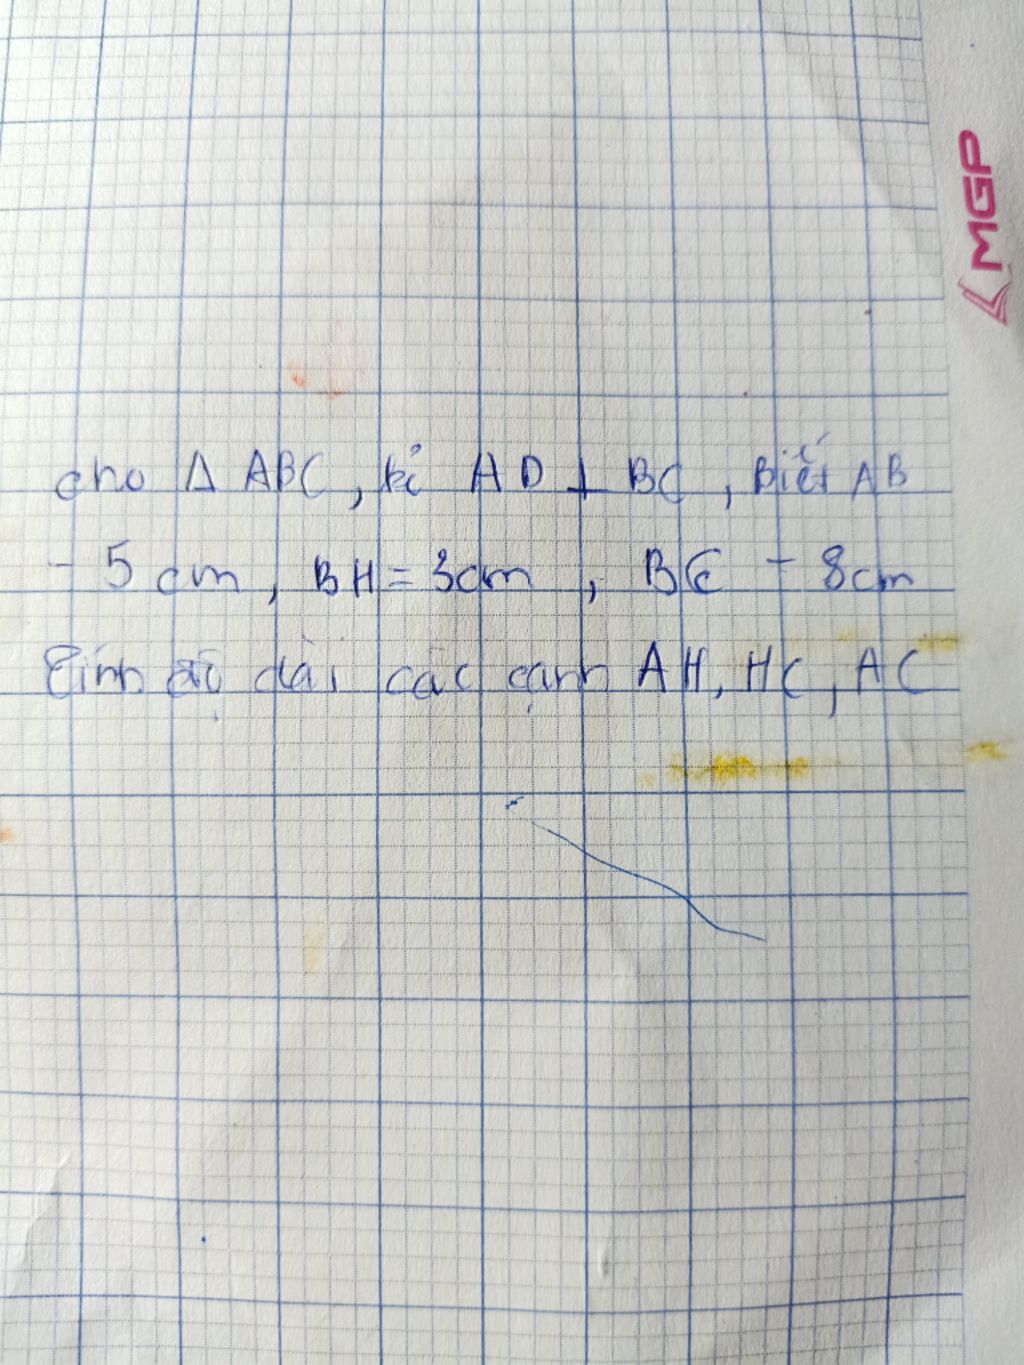 cho Δ ABC, kẻ AD ⊥ BC, Biết AB
= 5 cm, BH = 3cm, BC = 8cm
Tính độ dài các cạnh AH, HC, AC
MGP